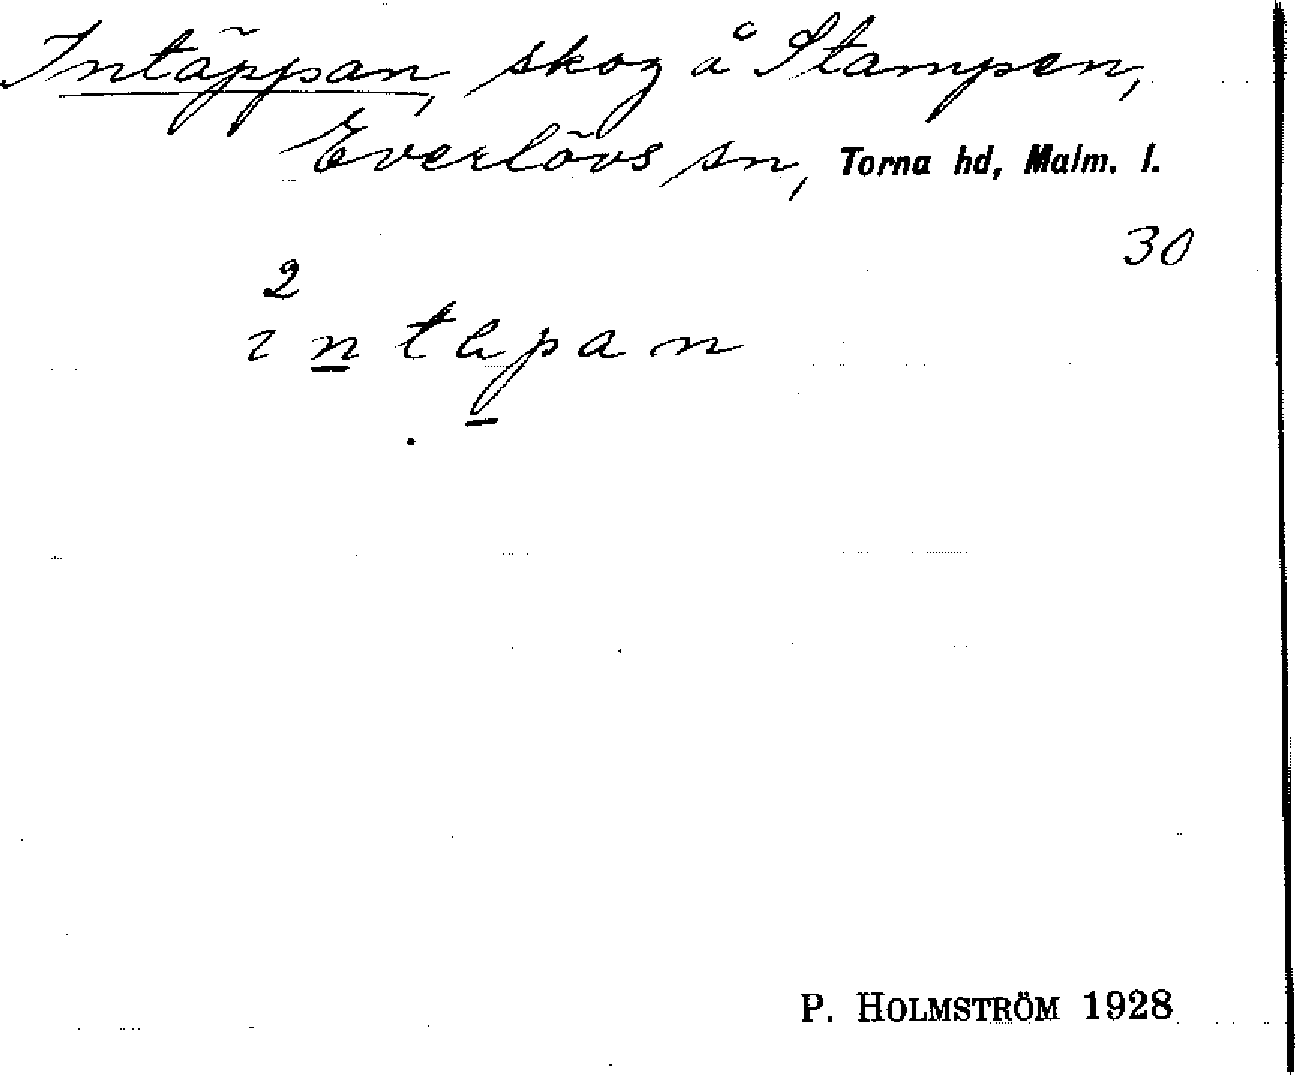 Intäppan, skog å Stampen,
Everlövs sn, Torna hd, Malm. l.
30
2
intapan
P. HOLMSTRÖM 1928